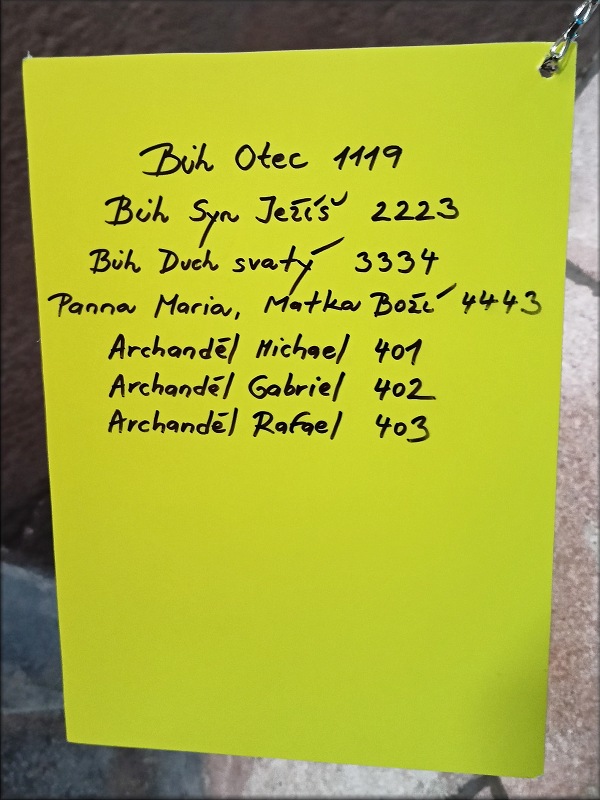 Bůh Otec 1119
Bůh Syn Ježíš 2223
Bůh Duch svatý 3334
Panna Maria, Matka Boží 4443
Archanděl Michael 401
Archanděl Gabriel 402
Archanděl Rafael 403